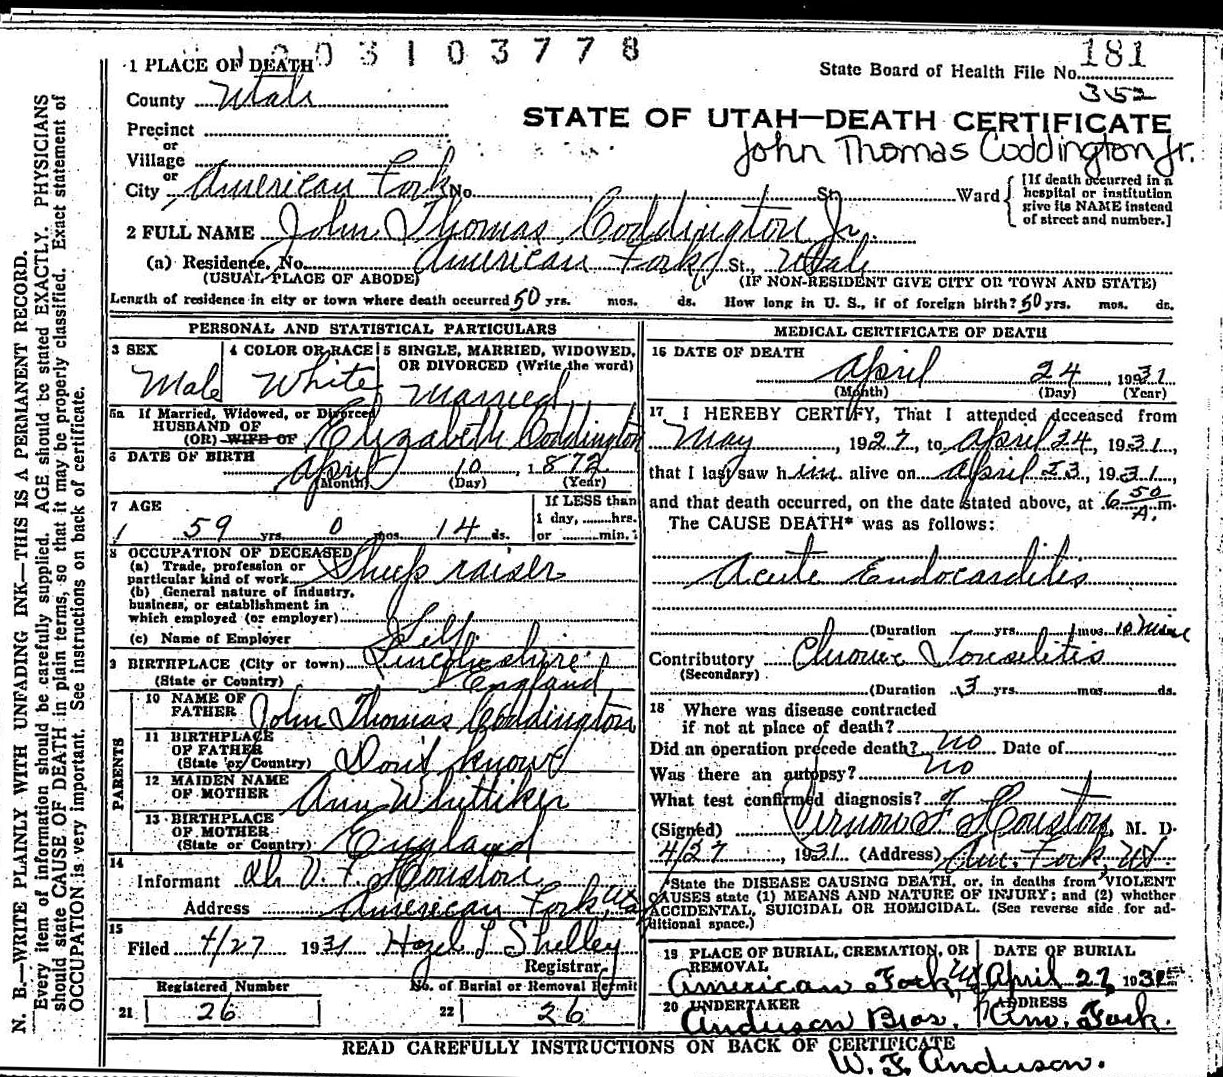 1203103778
181
1 PLACE OF DEATH
State Board of Health File No.
352
County Utah
STATE OF UTAH—DEATH CERTIFICATE
Precinct
or
John Thomas Coddington Jr.
Village
or
City American Fork No. St. Ward
[If death occurred in a
hospital or institution
give its NAME instead
of street and number.]
2 FULL NAME John Thomas Coddington Jr.
(a) Residence, No. American Fork St., Utah
(USUAL PLACE OF ABODE) (IF NON-RESIDENT GIVE CITY OR TOWN AND STATE)
Length of residence in city or town where death occurred 50 yrs. mos. ds. How long in U. S., if of foreign birth? 50 yrs. mos. ds.
PERSONAL AND STATISTICAL PARTICULARS
3 SEX
Male
4 COLOR OR RACE
White
5 SINGLE, MARRIED, WIDOWED,
OR DIVORCED (Write the word)
Married
5a If Married, Widowed, or Divorced
HUSBAND OF
(OR) WIFE OF Elizabeth Coddington
6 DATE OF BIRTH April 10, 1872
(Month) (Day) (Year)
7 AGE
59 yrs. 0 mos. 14 ds.
If LESS than
1 day, hrs.
or min.?
8 OCCUPATION OF DECEASED
(a) Trade, profession or
particular kind of work Sheep raiser
(b) General nature of Industry,
business, or establishment in
which employed (or employer)
(c) Name of Employer Self
9 BIRTHPLACE (City or town) Lincolnshire
(State or Country) England
PARENTS
10 NAME OF
FATHER John Thomas Coddington
11 BIRTHPLACE
OF FATHER
(State or Country) Don't know
12 MAIDEN NAME
OF MOTHER Ann Whittiker
13 BIRTHPLACE
OF MOTHER
(State or Country) England
14
Informant Dr. V. F. Houston
Address American Fork, Utah
15
Filed 4/27 1931 Hazel L Shelley
Registrar
Registered Number
21 26
No. of Burial or Removal Permit
22 26
MEDICAL CERTIFICATE OF DEATH
16 DATE OF DEATH
April 24, 1931
(Month) (Day) (Year)
17 I HEREBY CERTIFY, That I attended deceased from
May, 1927, to April 24, 1931,
that I last saw him alive on April 23, 1931,
and that death occurred, on the date stated above, at 6 50 A. m.
The CAUSE DEATH* was as follows:
Acute Endocarditis
(Duration yrs. mos. 10 mine
Contributory Chronic Tonselitis
(Secondary)
(Duration 3 yrs. mos. ds.
18 Where was disease contracted
if not at place of death?
Did an operation precede death? no Date of
Was there an autopsy? no
What test confirmed diagnosis?
(Signed) Vernon F Houston, M. D.
4/27, 1931 (Address) Am. Fork, Ut.
*State the DISEASE CAUSING DEATH, or, in deaths from VIOLENT
CAUSES state (1) MEANS AND NATURE OF INJURY; and (2) whether
ACCIDENTAL, SUICIDAL OR HOMICIDAL. (See reverse side for ad-
ditional space.)
19 PLACE OF BURIAL, CREMATION, OR
REMOVAL
American Fork Ut
DATE OF BURIAL
April 27, 1931
20 UNDERTAKER
Anderson Bros.
ADDRESS
Am. Fork.
READ CAREFULLY INSTRUCTIONS ON BACK OF CERTIFICATE
W. F. Anderson.
N. B.—WRITE PLAINLY WITH UNFADING INK—THIS IS A PERMANENT RECORD.
Every item of information should be carefully supplied. AGE should be stated EXACTLY. PHYSICIANS
should state CAUSE OF DEATH in plain terms, so that it may be properly classified. Exact statement of
OCCUPATION is very important. See instructions on back of certificate.